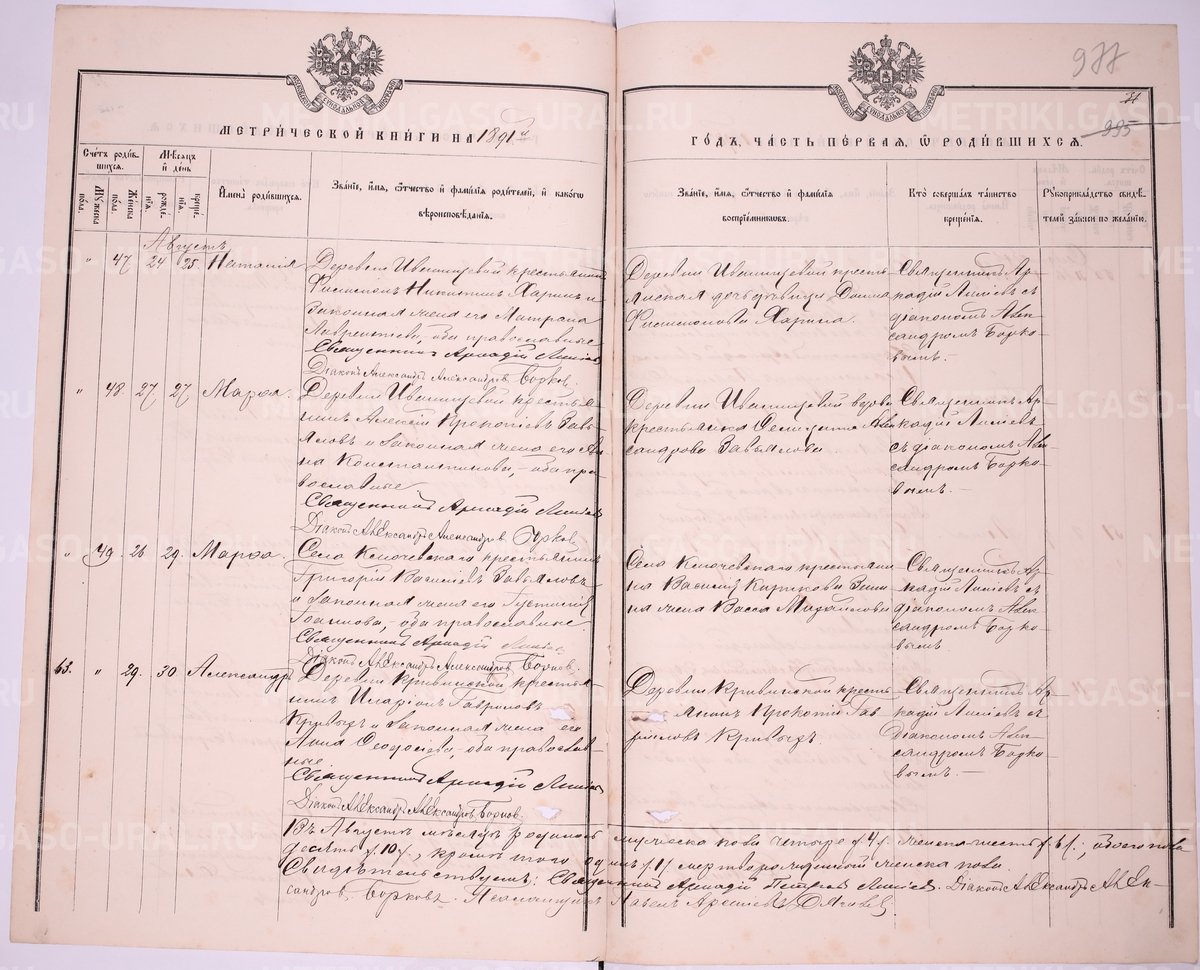 977
МЕТРИ́ЧЕСКОЙ КНИ́ГИ НА 1891 й
ГО́ДЪ, ЧА́СТЬ ПЕ́РВАЯ, Ѡ РОДИ́ВШИХСЯ.
995
Счетъ роди́вшихся.
Мѣсяцъ и день
Мужеска пола.
Женска пола.
рожденїя.
крещенїя.
Имена̀ роди́вшихся.
Зва́нїе, и́мя, ѻ́тчество и фами́лїя роди́телей, и како́гѡ
вѣроисповѣ́данїя.
Зва́нїе, и́мя, ѻ́тчество и фами́лїя
воспрїе́мниковъ.
Кто̀ соверша́лъ та́инство
креще́нїя.
Рꙋкоприкла́дство свидѣ́телей за́писи по жела́нїю.
Августъ
" 47 24 25 Наталія
Деревни Иванищевой крестьянинъ
Никитинъ Харинъ и
законная жена его Матрона
Лаврентьева, оба православные
Священникъ Аркадій
Діаконъ Александръ Александровъ Борковъ.
Деревни Иванищевой кресть-
янская дочь дѣвица Домна
Харина.
Священникъ Ар-
кадій съ
діакономъ Алек-
сандромъ Борко-
вымъ.
" 48. 27 27 Марѳа.
Деревни Иванищевой крестья-
нинъ Алексій Прокопьевъ Завь-
яловъ и законная жена его Ан-
на Константинова, оба пра-
вославные
Священникъ Аркадій
Діаконъ Александръ Александровъ Борковъ
Деревни Иванищевой вдова
крестьянка Алек-
сандрова Завьялова.
Священникъ Ар-
кадій
съ діакономъ Алек-
сандромъ Борко-
вымъ.
" 49. 26 29. Марѳа.
Села Ключевскаго крестьянинъ
Григорій Василіевъ Завьяловъ
и законная жена его Іустинія
Іоаннова, оба православные.
Священникъ Аркадій
Діаконъ Александръ Александровъ Борковъ.
Села Ключевскаго крестьяни-
на Василія Кирикова Зыки-
на жена Васса Михайлова
Священникъ Ар-
кадій съ
діакономъ Алек-
сандромъ Борко-
вымъ
63. " 29. 30 Александръ
Деревни Кривинской крестья-
нинъ Иларіонъ Гавриловъ
Кривыхъ и законная жена его
Анна Ѳеодосіева, оба православ-
ные
Священникъ Аркадій
Діаконъ Александръ Александровъ Борковъ.
Деревни Кривинской кресть-
янинъ Прокопій Гав-
риловъ Кривыхъ.
Священникъ Ар-
кадій съ
Діакономъ Алек-
сандромъ Борко-
вымъ.
Въ Августѣ мѣсяцѣ родилось мужеска пола четыре /4/. женска шесть /6/.; обоего пола
десять /10/, кромѣ того одинъ /1/ мертворожденный женска пола
Свидѣтельствуемъ: Священникъ Аркадій Петровъ Діаконъ Александръ Алек-
сандровъ Борковъ. Псаломщикъ Павелъ